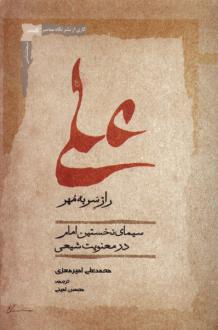 کاری از نشر نگاه معاصر
علی
راز سر به مهر
سیمای نخستین امام
در معنویت شیعی
محمدعلی امیرمعزی
ترجمه